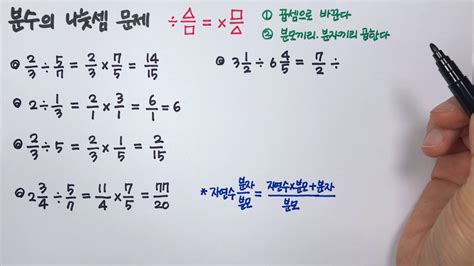 분수의 나눗셈 문제 ÷△/□ = ×□/△
① 곱셈으로 바꾼다
② 분모끼리, 분자끼리 곱한다
◎ 2/3 ÷ 5/7 = 2/3 × 7/5 = 14/15
◎ 2 ÷ 1/3 = 2/1 × 3/1 = 6/1 = 6
◎ 2/3 ÷ 5 = 2/3 × 1/5 = 2/15
◎ 2 3/4 ÷ 5/7 = 11/4 × 7/5 = 77/20
◎ 3 1/2 ÷ 6 4/5 = 7/2 ÷
* 자연수 분자/분모 = 자연수×분모+분자/분모